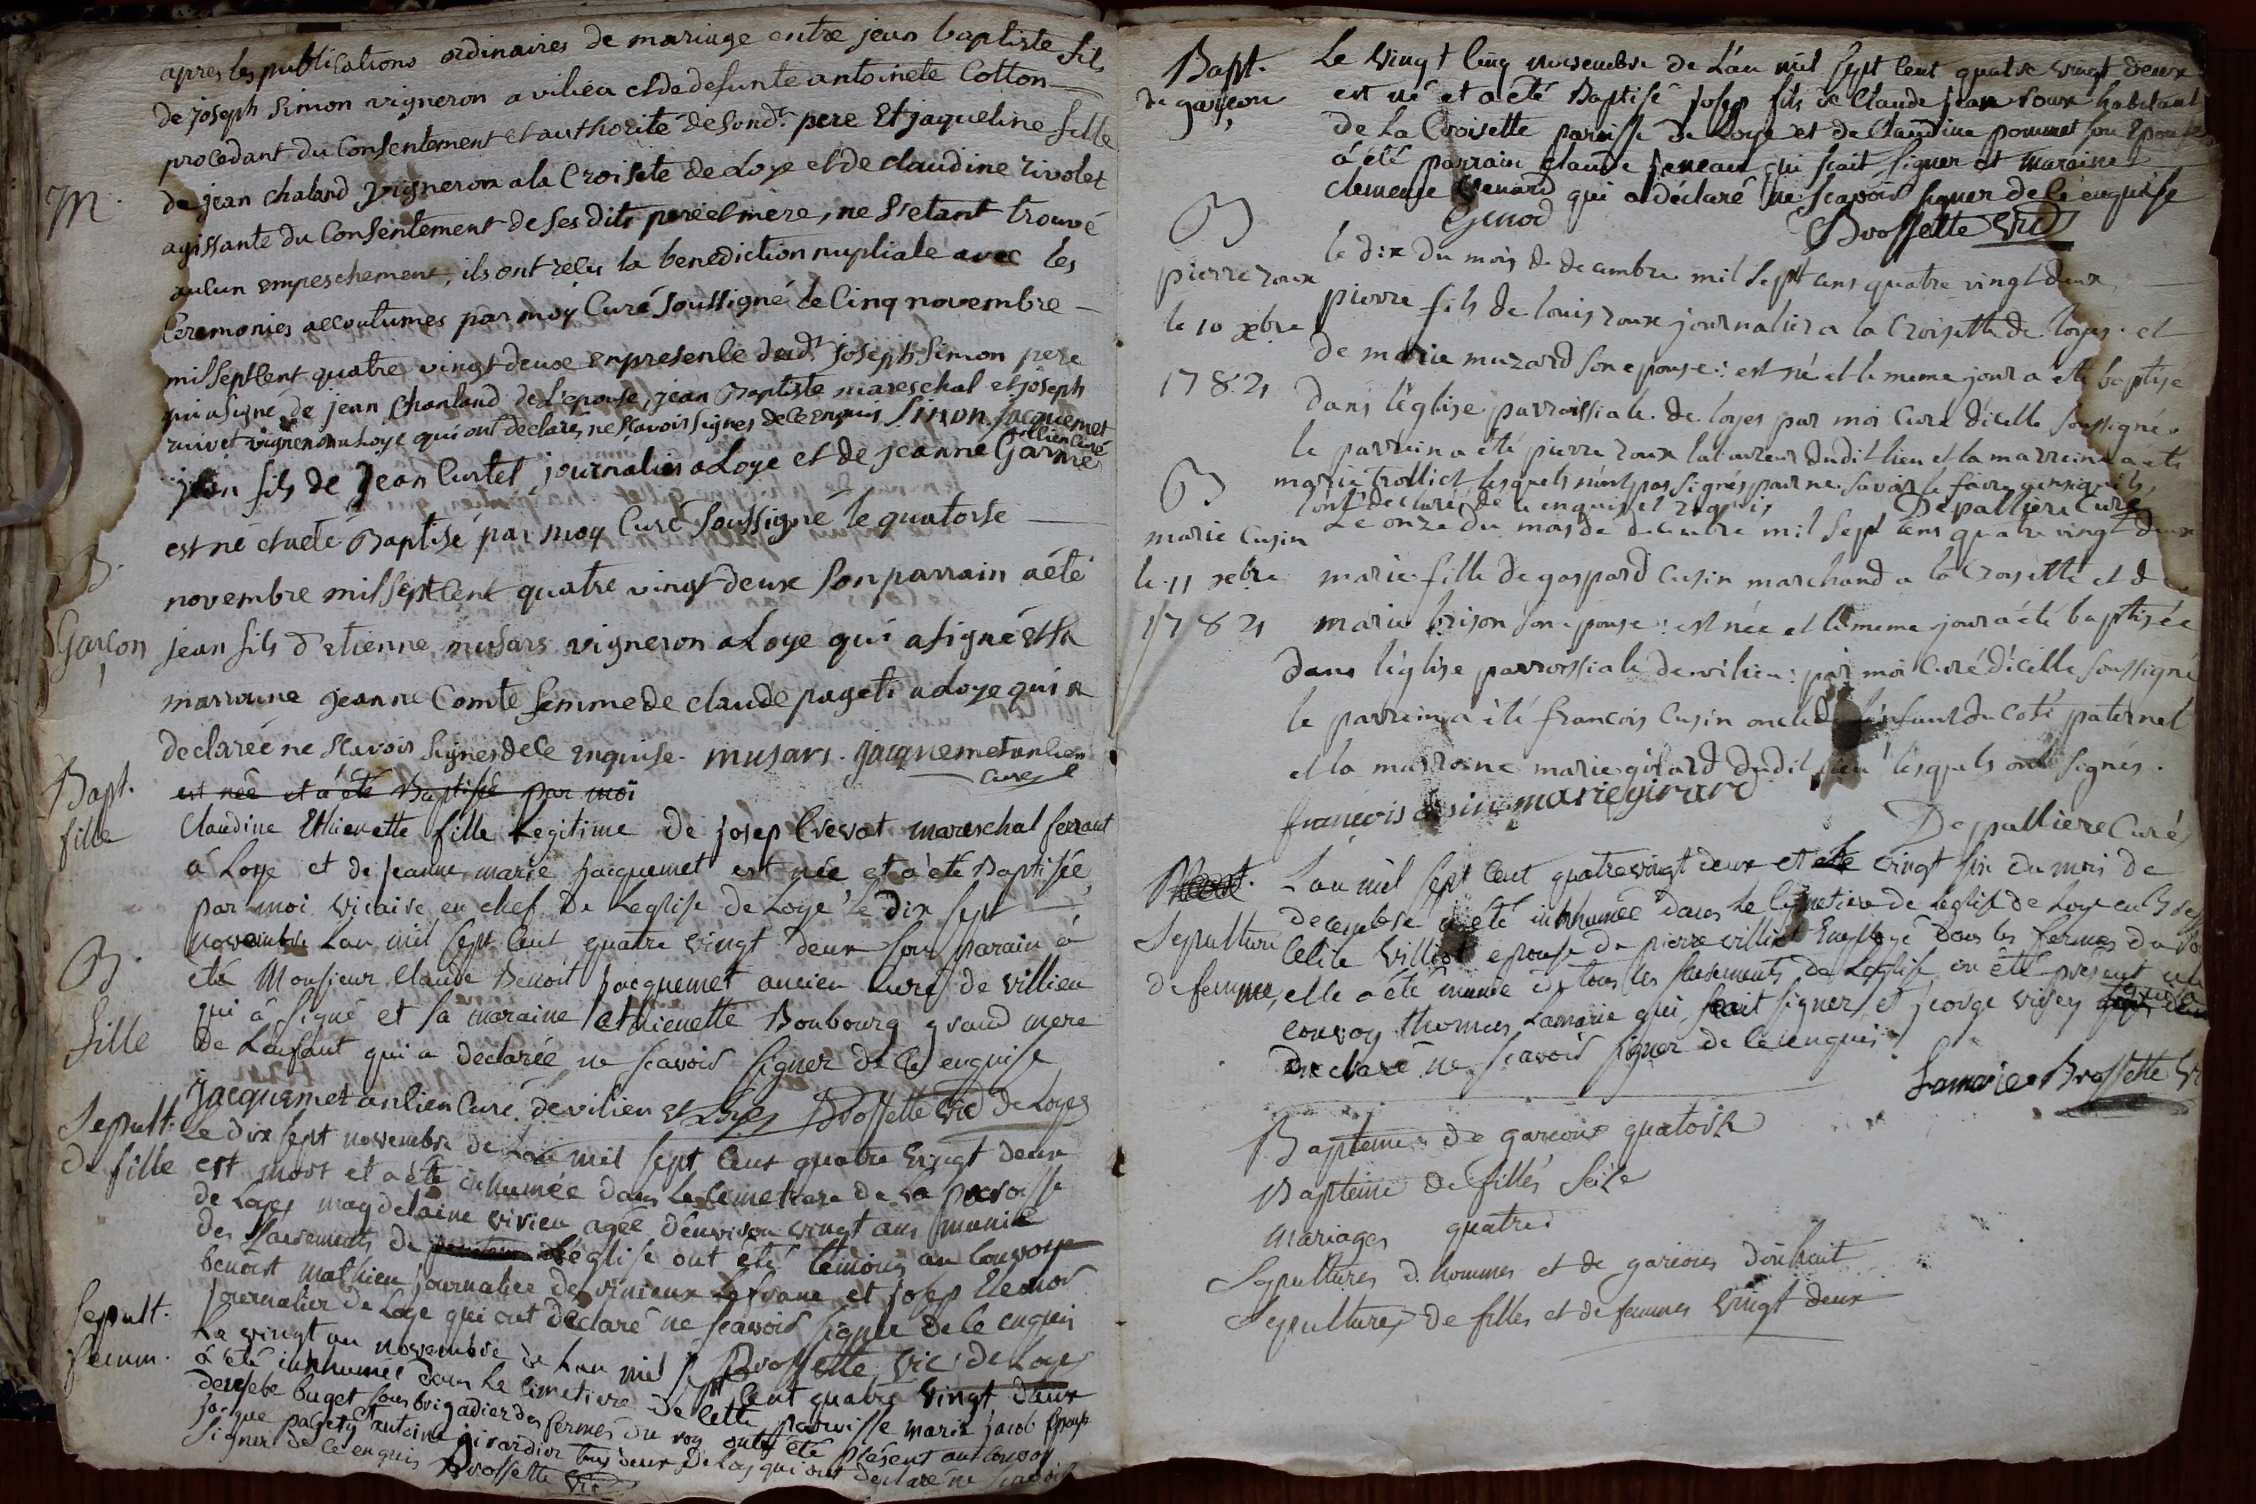 apres les publications ordinaires de mariage entre jean baptiste fils
de joseph Simon vigneron a vilieu et de defunte antoinete Cotton
procedant du Consentement et authorité de sond.t pere Et jaqueline fille
M.
de jean chaland vigneron a la Croisete de Loye et de claudine rivolet
agissante du Consentement de ses dits pere et mere, ne s'etant trouvé
aucun empeschement, ils ont reçu la benediction nuptiale avec les
Ceremonies accoutumes par moy Curé soussigné le Cinq novembre
mil sept Cent quatre vingt deux en presence dud.t joseph Simon pere
qui a signé, de jean Chanland de l'epouse, jean Baptiste mareschal et joseph
vigneron a Loye qui ont declarés ne sçavoir signer de ce enquis Simon. jacquemet
ancien curé
B.
Garçon
jean fils de Jean Curtet journalier a Loye et de jeanne Garnie
est né et a eté Baptisé par moy Curé soussigné le quatorse
novembre mil sept Cent quatre vingt deux son parrain a été
jean fils d'etienne musars vigneron a Loye qui a signé et la
marraine jeanne Comte femme de claude pageti a Loye qui a
declareé ne sçavoir signer de ce enquise. musars. jacquemet ancien
curé
Bapt.
fille
est neê et a été Baptisée par moi
Claudine Ethienette fille Legitime de josep Crevat mareschal ferrant
a Loye et de jeanne marie jacquemet est née et à été Baptisée
par moi vicaire en chef de Leglise de Loye le dix sept
B.
fille
novembre Lan mil sept Cent quatre vingt deux son parain à
eté Monsieur Claude Benoit jacquemet ancien curé de villieu
qui à signé et sa maraine Ethienette Boubourg grand mere
de Lenfant qui a declarée ne scavoir signer de ce enquise
jacquemet ancien Curé de vilieu et Loyes Brossette vic de Loyes
Sepult.
de fille
Le dix sept novembre de Lan mil sept Cent quatre vingt deux
est mort et a été inhumée dans Le cemetiere de La paroisse
de Loyes magdelaine vivien agée d'environ vingt ans munie
des sacrements de L'église ont été temoins au convoye
benoist mathieu journalier de vinieux Lefranc et josep
journalier de Loye qui ont declaré ne scavoir signer de ce enquis
Brossette vic de Loyes
Sepult.
femm.
Le vingt un novembre de Lan mil sept Cent quatre vingt deux
à été inhumée dans Le cimetiere de Cette parroisse marie jacob epouse
buget sous brigadier des fermes du roy ont été présent au convoy
jacque pagety antoine girardier tous deux de Loy qui ont declaré ne scavoir
signer de ce enquis Brossette vic
Bapt.
de garçon
Le vingt Cinq novembre de Lan mil sept Cent quatre vingt deux
est né et a été Baptisé josep fils de Claude jean roux habitant
de La Croisette paroisse de Loye et de Claudine pommet son Epouse
á été parrain claude qui scait signer et maraine
clemence venard qui a déclaré ne scavoir signer de ce enquise
Genod Brossette vic
B
pierre roux
le 10 xbre
1782
le dix du mois de decembre mil sept cens quatre vingt deux
pierre fils de louis roux journalier a la Croisette de loyes et
de marie muzard son epouse: est né et le meme jour a eté baptise
dans l'église parroissiale de loyes par moi Curé d'icelle soussigné.
le parrein a été pierre roux laboureur dudit lieu et la marreine a eté
marie trolliet lesquels n'ont pas signés pour ne savoir le faire ainsi qu'ils
l'ont declaré de ce enquis et requis, Depalliere Curé
B
marie Cusin
le 11 xbre
1782
Le onze du mois de decembre mil sept cens quatre vingt deux
marie fille de gaspard Cusin marchand a la Croisette et de
marie brison son epouse: est née et le meme jour a été baptisée
dans l'église parroissiale de vilieu: par moi Curé d'icelle soussigné
le parrein a été francois Cusin oncle de l'enfant du coté paternel
et la marreine marie girard dudit lieu lesquels ont signés.
francois cusin marie girard
Depalliere Curé
Sepulture
de femme
Lan mil sept Cent quatre vingt deux et le vingt six du mois de
decembre a été inhumée dans Le Cimetiere de Léglise de Loye
Cecile Villiot epouse de pierre villiot Employé dans les fermes du roy
elle a été munie de tous les sacrements de Leglise, on été présent au
convoy thomas Lamarie qui scait signer, et george visey
declaré ne scavoir signer de ce enquis.
Lamarie Brossette vic
Bapteme de garçons quatorze
Bapteme de filles seize
mariages quatre
Sepultures d'hommes et de garçons dixhuit
Sepultures de filles et de femmes vingt deux